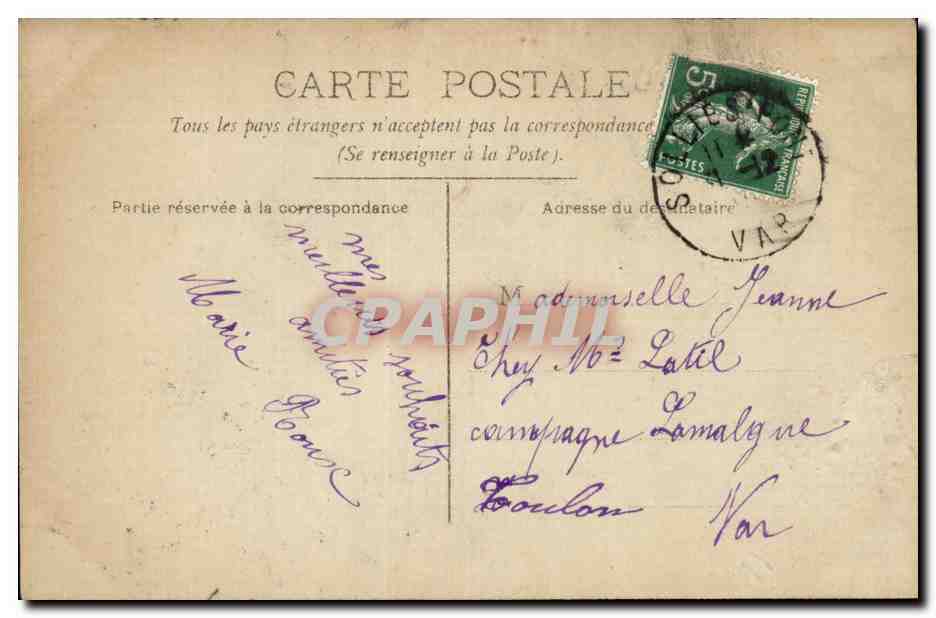 CARTE POSTALE
Tous les pays étrangers n'acceptent pas la correspondance
(Se renseigner à la Poste).
Partie réservée à la correspondance
Adresse du destinataire
5
REPUBLIQUE FRANÇAISE
POSTES
SOLLIES-PONT
12
VAR
mes
meilleurs souhaits
amitiés
Marie Roux
Mademoiselle Jeanne
Chez Mr Latil
campagne Lamalgue
Toulon Var
CPAPHIL